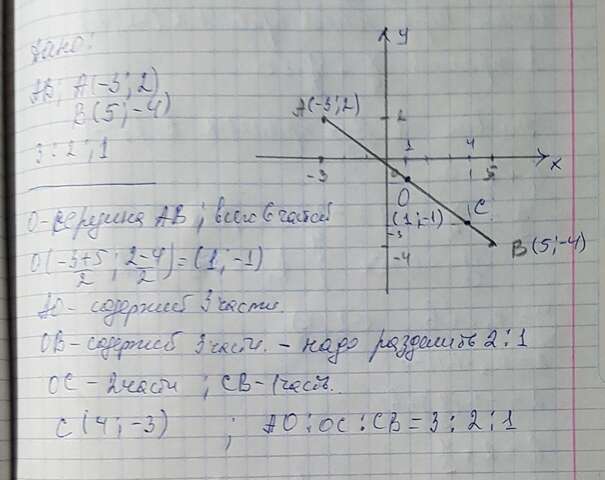 Дано:
AB; A(-3; 2)
B(5; -4)
3 : 2 : 1
O - середина AB; всего 6 частей
O(-3+5/2; 2-4/2) = (1; -1)
AO - содержит 3 части.
OB - содержит 3 части. - надо разделить 2 : 1
OC - 2 части; CB - 1 часть.
C(4; -3) ; AO : OC : CB = 3 : 2 : 1
y
A(-3; 2)
2
1 4
x
-3 1 5
O
(1; -1) C
-3
-4 B(5; -4)